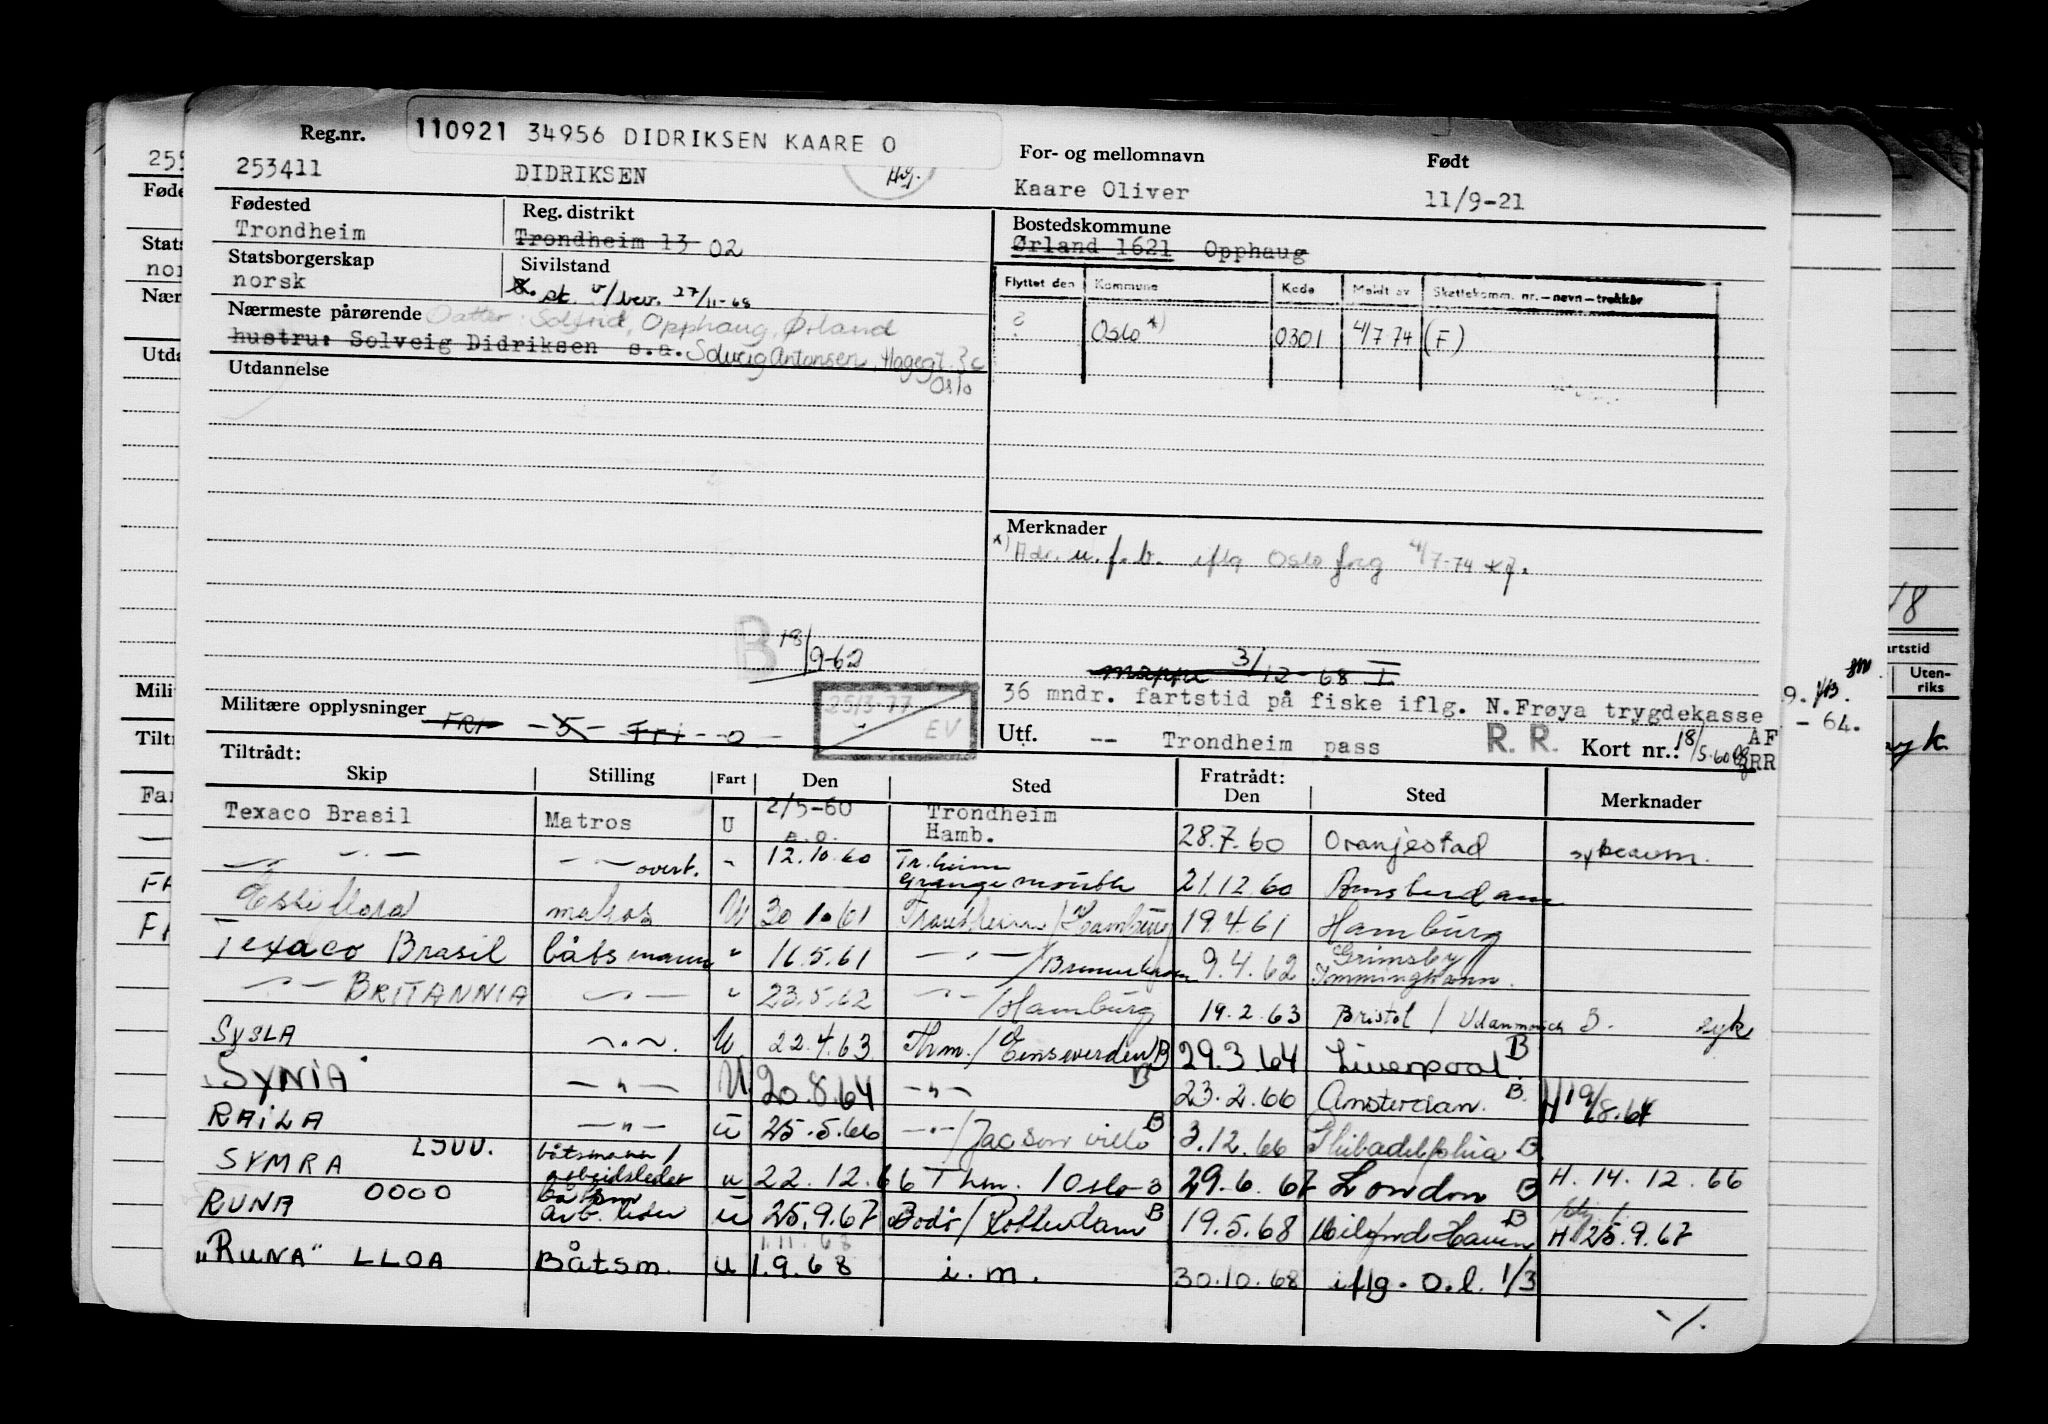 Reg.nr. 110921 34956 DIDRIKSEN KAARE O For- og mellomnavn Født
253411 DIDRIKSEN Kaare Oliver 11/9-21
Fødested Reg. distrikt Bostedskommune
Trondheim Trondheim 13 02 Ørland 1621 Opphaug
Statsborgerskap Sivilstand Flyttet den Kommune Kode Meldt av Skattekomm. nr.-navn-trekkår
norsk 27/11-68
? Oslo *) 0301 4/7 74 (F)
Nærmeste pårørende Datter: Solfrid, Opphaug, Ørland
hustru: Solveig Didriksen s.a. Solveig Antonsen, Hagegt. 3c
Oslo
Utdannelse
Merknader
*) Adr. u.f.b. iflg Oslo frg 4/7-74
B 18/9-62
mappe 3/12-68 I
36 mndr. fartstid på fiske iflg. N.Frøya trygdekasse
Militære opplysninger FRI -5- Fri -0- 25/3-77 EV
Utf. -- Trondheim pass R. R. Kort nr.: 18/5.60 AF
RR
Tiltrådt: Fratrådt:
Skip Stilling Fart Den Sted Den Sted Merknader
Texaco Brasil Matros U 2/5-60 Trondheim
a.o. Hamb. 28.7.60 Oranjestad
— " — — " — overt. " 12.10.60 Tr.heim
Grangemouth 21.12.60 Amsterdam
matros U 30.1.61 Trondheim/Hamburg 19.4.61 Hamburg
Texaco Brasil båtsmann " 16.5.61 — " — / 9.4.62 Grimsby
Immingham.
— " — BRITANNIA — " — " 23.5.62 — " — /Hamburg 19.2.63 Bristol / B. syk
SYSLA — " —. U 22.4.63 Thm./Einswarden B 29.3.64 Liverpool. B
"SYNIA" — " — U 20.8.64 — " — B 23.2.66 Amsterdam. B. H 19/8.64
RAILA — " — u 25.5.66 — " — /Jacsonville B 3.12.66 Philadelphia B
SYMRA båtsmann/
arbeidsleder u 22.12.66 Thm. / Oslo B 29.6.67 London B H. 14.12.66
RUNA OOOO
arb. leder u 25.9.67 Bodø/Rotterdam B 19.5.68 Milford Haven B H. 25.9.67
1.11.68
"RUNA" LLOA Båtsm. u 1.9.68 i.m. 30.10.68 iflg. o.l. 1/3